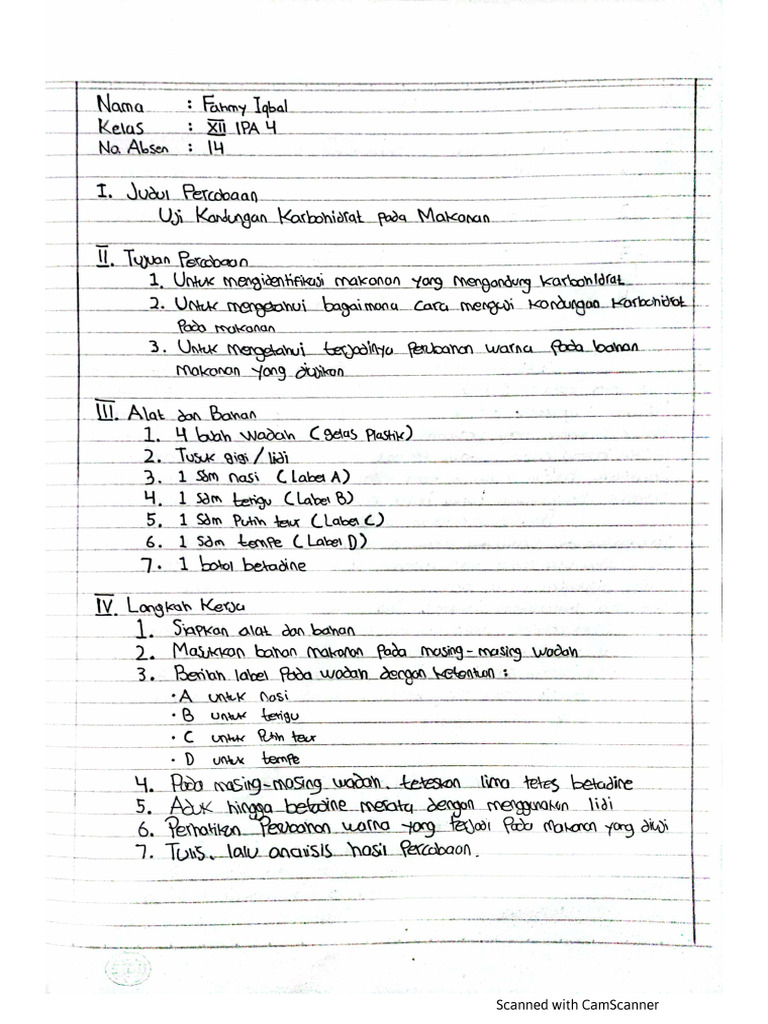 Nama : Fahmy Iqbal
Kelas : XII IPA 4
No. Absen : 14
I. Judul Percobaan
Uji Kandungan Karbohidrat pada Makanan
II. Tujuan Percobaan
1. Untuk mengidentifikasi makanan yang mengandung karbohidrat
2. Untuk mengetahui bagaimana cara menguji kandungan karbohidrat
pada makanan
3. Untuk mengetahui terjadinya perubahan warna pada bahan
makanan yang diujikan
III. Alat dan Bahan
1. 4 buah wadah (gelas plastik)
2. Tusuk gigi / lidi
3. 1 sdm nasi (Label A)
4. 1 sdm terigu (Label B)
5. 1 sdm Putih telur (Label C)
6. 1 sdm tempe (Label D)
7. 1 botol betadine
IV. Langkah Kerja
1. Siapkan alat dan bahan
2. Masukkan bahan makanan pada masing-masing wadah
3. Berilah label pada wadah dengan ketentuan :
• A untuk nasi
• B untuk terigu
• C untuk Putih telur
• D untuk tempe
4. Pada masing-masing wadah, teteskan lima tetes betadine
5. Aduk hingga betadine merata dengan menggunakan lidi
6. Perhatikan Perubahan warna yang terjadi pada makanan yang diuji
7. Tulis, lalu analisis hasil Percobaan.
Scanned with CamScanner